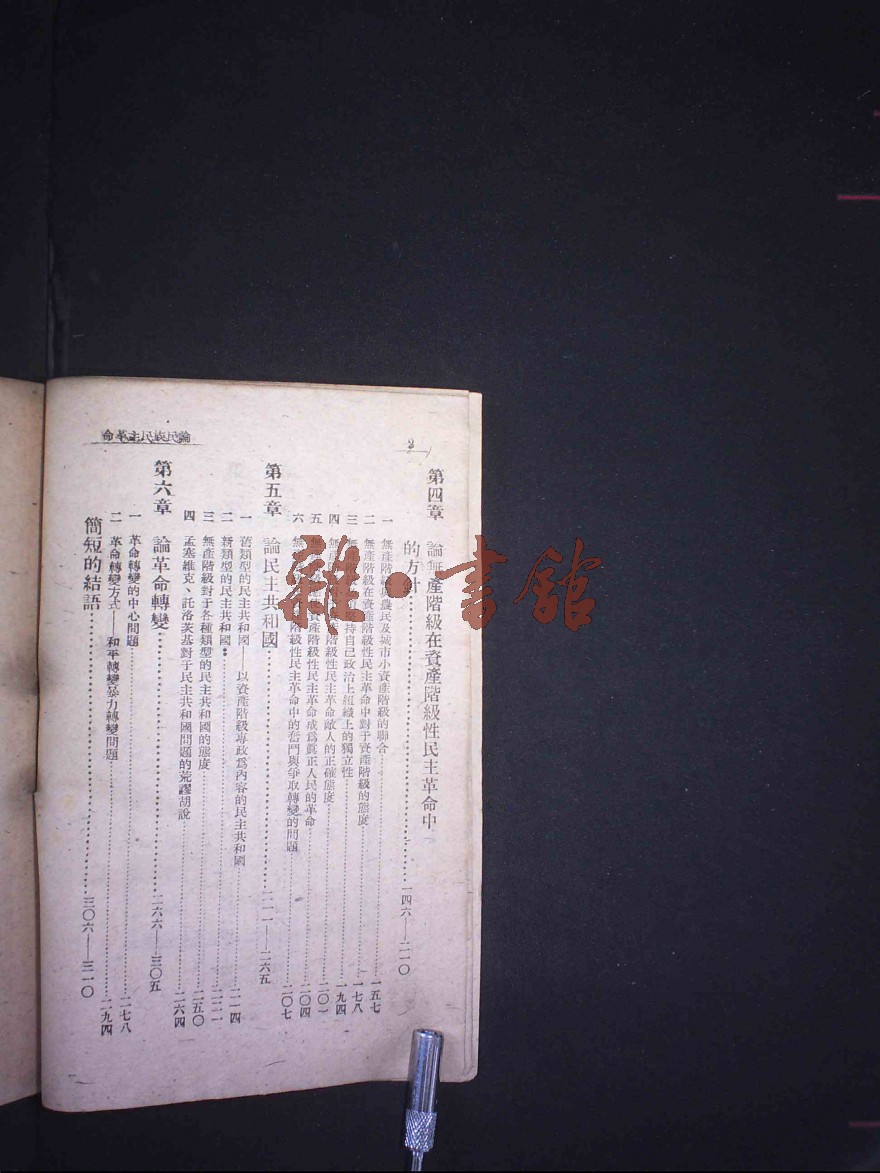 論民族民主革命
2
第四章 論無產階級在資產階級性民主革命中
的方針……一四六—二一〇
一 無產階級與農民及城市小資產階級的聯合……一五七
二 無產階級在資產階級性民主革命中對于資產階級的態度……一七八
三 持自己政治上組織上的獨立性……一九四
四 無產階級性民主革命敵人的正確態度……二〇一
五 資產階級性民主革命成爲眞正人民的革命……二〇四
六 無階級性民主革命中的奮鬥與爭取轉變的問題……二〇七
第五章 論民主共和國……二一一—二六五
一 舊類型的民主共和國——以資產階級專政爲內容的民主共和國……二一四
二 新類型的民主共和國……二二一
三 無產階級對于各種類型的民主共和國的態度……二五〇
四 孟塞維克、託洛茨基對于民主共和國問題的荒謬胡說……二六四
第六章 論革命轉變……二六六—三〇五
一 革命轉變的中心問題……二七八
二 革命轉變方式——和平轉變暴力轉變問題……二九四
簡短的結語……三〇六—三一〇
雜·書館